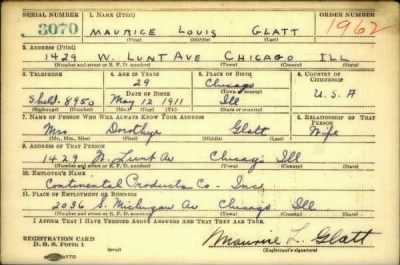 SERIAL NUMBER 1. NAME (Print) ORDER NUMBER
3070 MAURICE LOUIS GLATT 1962
(First) (Middle) (Last)
2. ADDRESS (Print)
1429 W. LUNT AVE CHICAGO ILL
(Number and street or R. F. D. number) (Town) (County) (State)
3. TELEPHONE 4. AGE IN YEARS 5. PLACE OF BIRTH 6. COUNTRY OF CITIZENSHIP
29 Chicago
DATE OF BIRTH (Town or county)
Sheld. 8950 May 12 1911 Ill U.S.A
(Exchange) (Number) (Mo.) (Day) (Yr.) (State or country)
7. NAME OF PERSON WHO WILL ALWAYS KNOW YOUR ADDRESS 8. RELATIONSHIP OF THAT PERSON
Mrs Dorothye Glatt Wife
(Mr., Mrs., Miss) (First) (Middle) (Last)
9. ADDRESS OF THAT PERSON
1429 W. Lunt Av Chicago Ill
(Number and street or R. F. D. number) (Town) (County) (State)
10. EMPLOYER'S NAME
Continental Products Co - Inc
11. PLACE OF EMPLOYMENT OR BUSINESS
2036 S. Michigan Av Chicago Ill
(Number and street or R. F. D. number) (Town) (County) (State)
I AFFIRM THAT I HAVE VERIFIED ABOVE ANSWERS AND THAT THEY ARE TRUE.
REGISTRATION CARD
D. S. S. Form 1 (over) Maurice L. Glatt
(Registrant's signature)